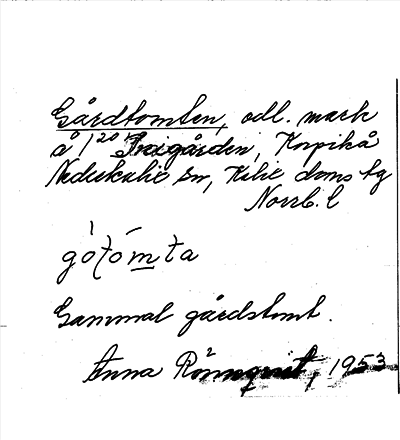 Gårdtomten, odl. mark
å 1²⁰ Inigården, Korpikå
Nederkalix sn, Kalix doms tg
Norrb. l
gó̀tómta
Gammal gårdstomt.
Anna Rönnqvist, 1953